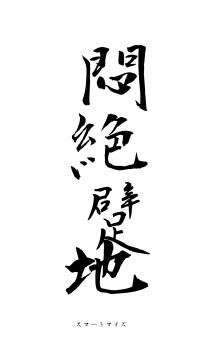 悶絶躄地
スマートマイズ